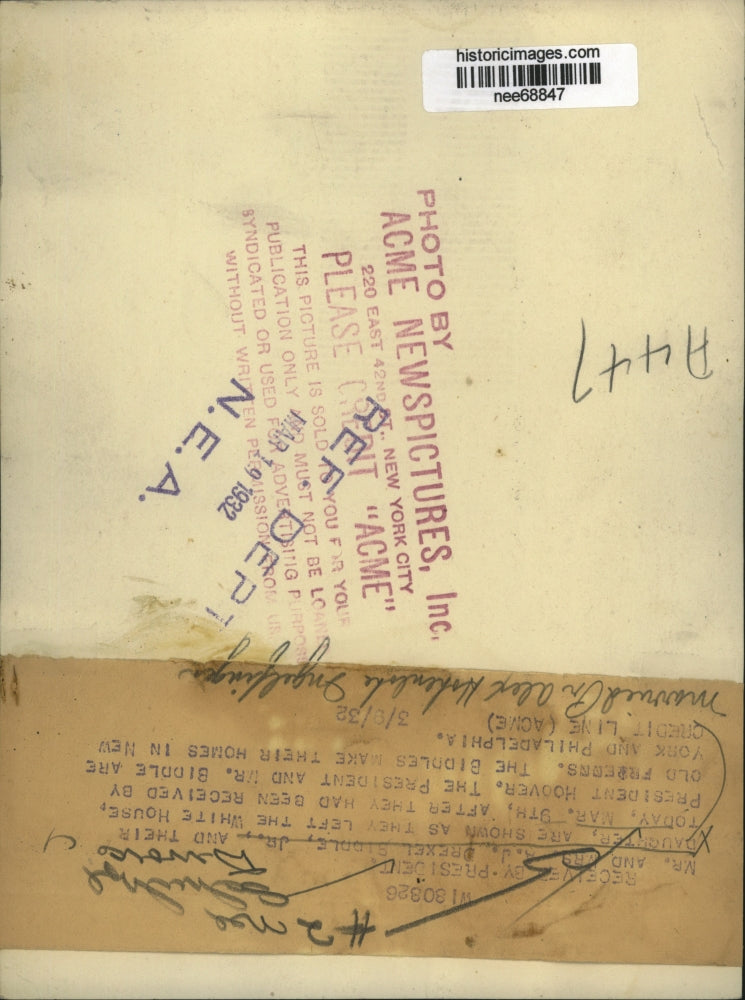 historicimages.com
nee68847
PHOTO BY
ACME NEWSPICTURES, Inc.
220 EAST 42ND ST., NEW YORK CITY
PLEASE CREDIT "ACME"
THIS PICTURE IS SOLD TO YOU FOR YOUR
PUBLICATION ONLY AND MUST NOT BE LOANED
SYNDICATED OR USED FOR ADVERTISING PURPOSE
WITHOUT WRITTEN PERMISSION FROM US
REF. DEPT
MAR 19 1932
N.E.A.
A447
#2 Mrs
W180826
RECEIVED BY PRESIDENT.
MR. AND MRS. J. DREXEL BIDDLE, JR., AND THEIR
DAUGHTER, ARE SHOWN AS THEY LEFT THE WHITE HOUSE,
TODAY, MAR. 9TH, AFTER THEY HAD BEEN RECEIVED BY
PRESIDENT HOOVER. THE PRESIDENT AND MR. BIDDLE ARE
OLD FRIENDS. THE BIDDLES MAKE THEIR HOMES IN NEW
YORK AND PHILADELPHIA.
CREDIT LINE (ACME) 3/9/32
married Pr Alex Hohenlohe